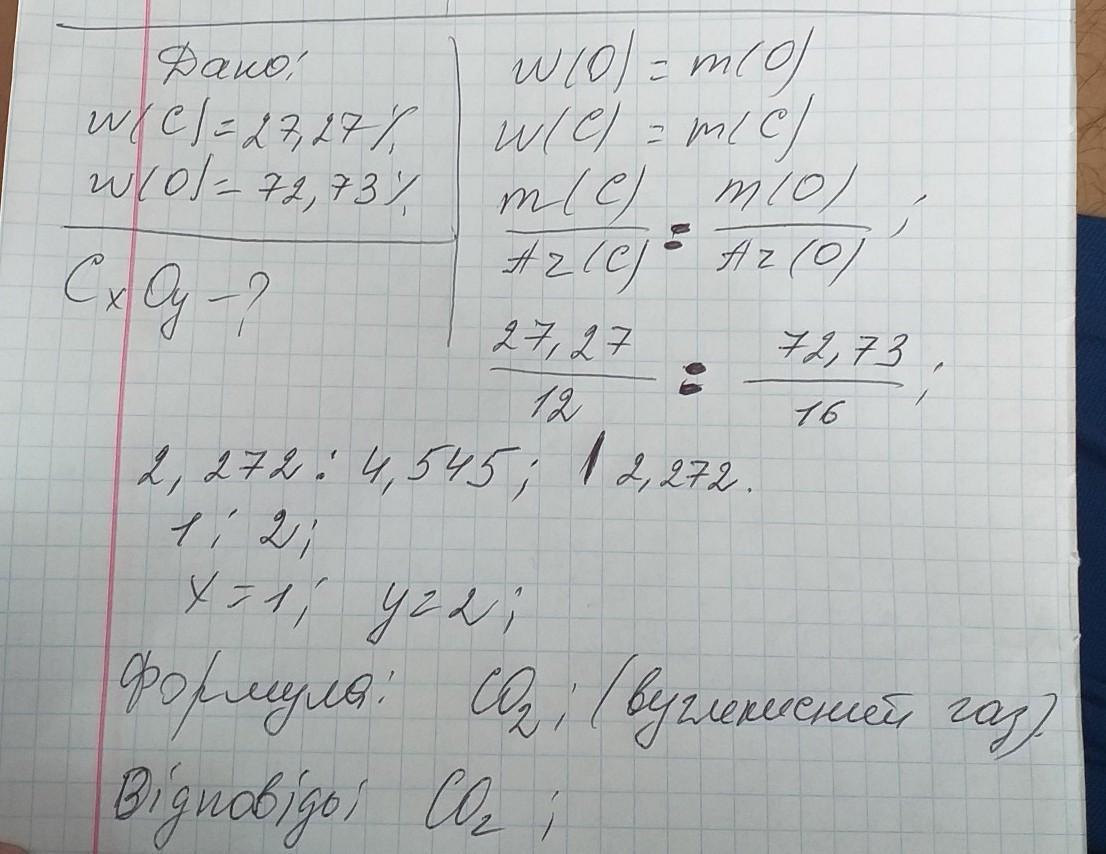 Дано:
w(C)=27,27%
w(O)=72,73%
CxOy-?
w(O)=m(O)
w(C)=m(C)
m(C)/Az(C) : m(O)/Az(O) ;
27,27/12 : 72,73/16 ;
2,272 : 4,545; | 2,272.
1 : 2;
x=1; y=2;
Формула: CO₂; (вуглекислий газ).
Відповідь: CO₂ ;